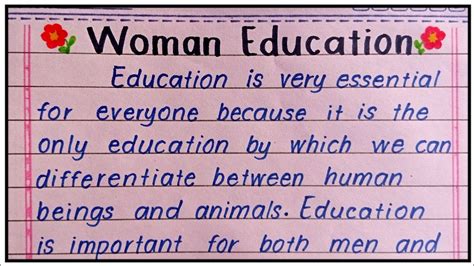 Woman Education
Education is very essential
for everyone because it is the
only education by which we can
differentiate between human
beings and animals. Education
is important for both men and